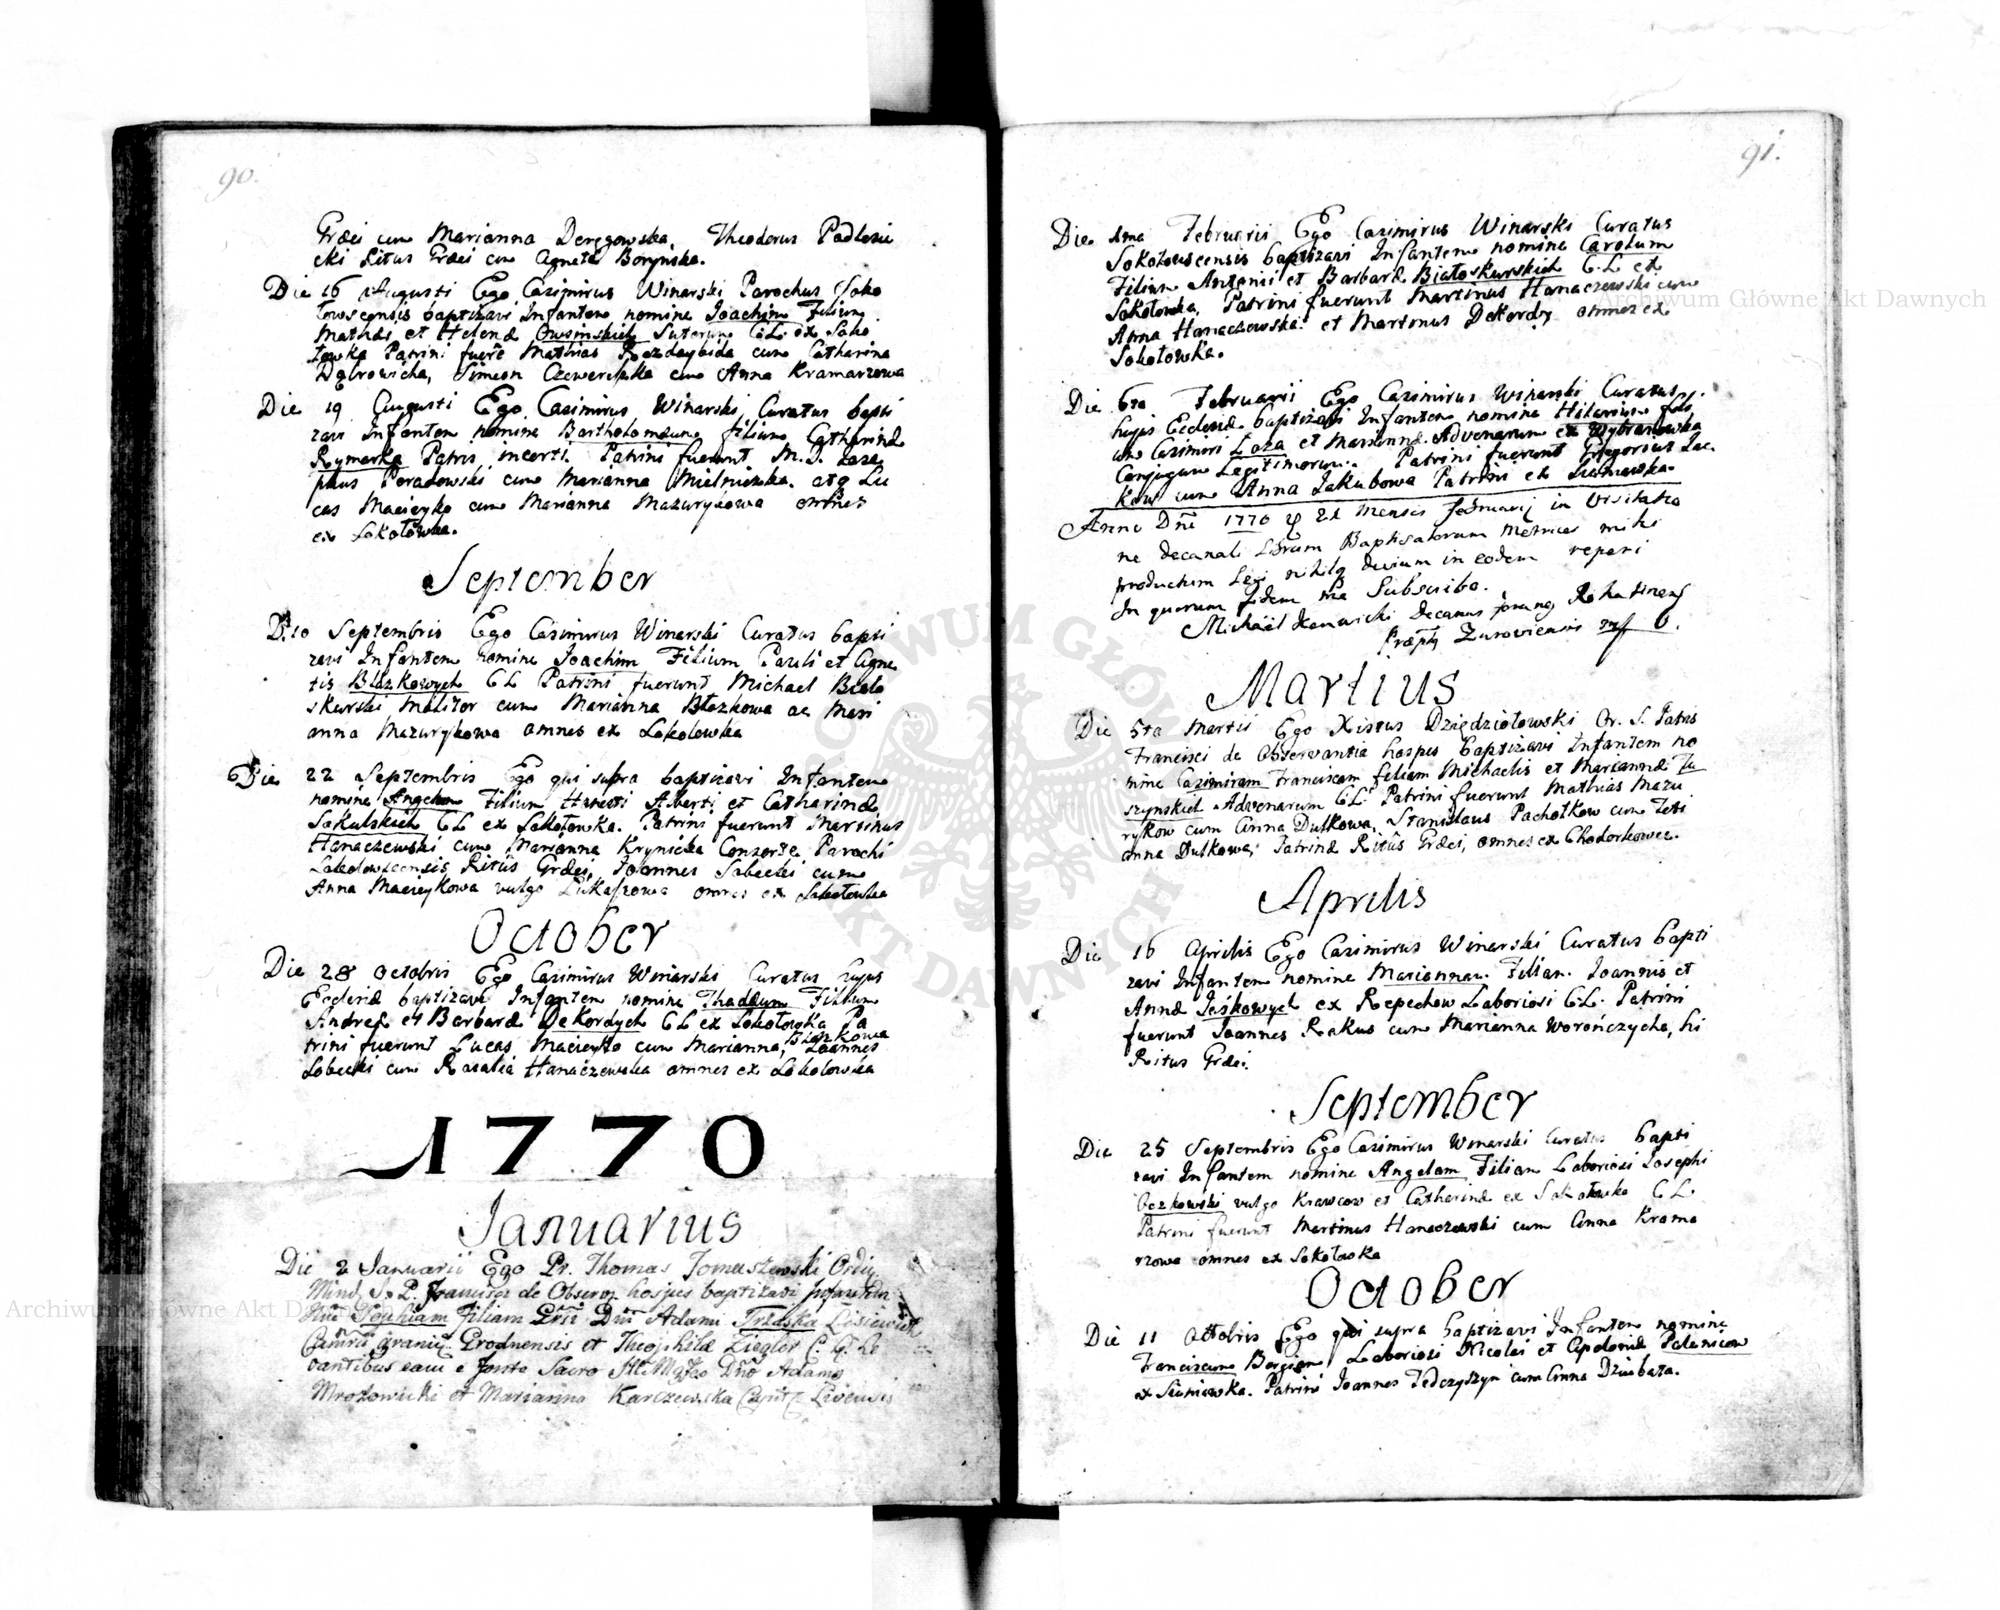 90.
Grăei cum Marianna Deręgowska, Theodorus Padlesie
cki Litus Grăei cum Agneta Borynska.
Die 16 Augusti Ego Casimirus Winarski Parochus Soko
lowscensis baptizavi Infantem nomine Joachim Filium
Mathiæ et Helenæ Owsinskich Sutorum CL ex Soko
lowka Patrini fuere Mathias Rozdaybida cum Catharina
Dąbrowicha, Simeon cum Anna Kramarzowa
Die 19 Augusti Ego Casimirus Winarski Curatus bapti
zavi Infantem nomine Bartholomæum filium Catharinæ
Rymarka Patris incerti. Patrini fuerunt M. D. Jose
phus Poradowski cum Marianna Mielniczka. atq Lu
cas Macieyko cum Marianna Mazurykowa omnes
ex Sokolowka.
September
Die 10 Septembris Ego Casimirus Winarski Curatus bapti
zavi Infantem nomine Joachim Filium Pauli et Agne
tis Błazkowych CL Patrini fuerunt Michael Biało
skurski Molitor cum Marianna Błazkowa ac Mari
anna Mazurykowa omnes ex Sokolowka
Die 22 Septembris Ego qui supra baptizavi Infantem
nomine Angelum Filium Alberti et Catharinæ
Sokulskich CL ex Sokołowka. Patrini fuerunt Martinus
Hanaczewski cum Marianna Krynicka Consorte Parochi
Sokolowscensis Ritûs Grăei, Joannes Sobecki cum
Anna Macieykowa vulgo Łukaszowa omnes ex Sokołowka
October
Die 28 Octobris Ego Casimirus Winarski Curatus hujus
Ecclesiæ baptizavi Infantem nomine Thadæum Filium
Andreæ et Barbaræ DeKordych CL ex Sokołowka Pa
trini fuerunt Lucas Macieyko cum Marianna Błazkowa
Joannes
Sobecki cum Rosalia Hanaczewska omnes ex Sokolowka
1770
Januarius
Die 2 Januarii Ego Pr. Thomas Tomaszewski Ordi
Minō S. P. Francisci de Observ hospes baptizavi Infantem
Sophiam filiam Dñi Adami Trzaska
Grodnensis et Theophilæ Ziegler C. L. Le
vantibus eam e fonte Sacro Dño Adamo
Mrozowicki et Marianna Karczewska
91.
Die 4ma Februarii Ego Casimirus Winarski Curatus
Sokolowscensis baptizavi Infantem nomine Carolum
Filium Antonii et Barbaræ Białoskurskich C.L ex
Sokołowka, Patrini fuerunt Martinus Hanaczewski cum
Anna Hanaczewska et Martinus Dekordy omnes ex
Sokołowka.
Die 6ta Februarii Ego Casimirus Winarski Curatus
hujus Ecclesiæ baptizavi Infantem nomine Hilarium fili
um Casimiri Łoza et Mariannæ Advenarum ex Wybranowka
Conjugum Legitimorum. Patrini fuerunt Gregorius Jac
kow cum Anna Jakubowa Patrini ex
Anno Dñi 1770 21 Mensis februarij in Visitatio
ne Decanali Librum Baptisatorum Metrices mihi
productum Legi nihilq devium in eodem reperi
In quorum fidem me Subscribo.
Michaël Decanus foraneq Rohatinens
Præptq Zuroviensis mp
Martius
Die 5ta Martii Ego Xistus Dziędziołowski Or. S. Patris
Francisci de Observantia hospes baptizavi Infantem no
mine Casimiram Franciscam filiam Michaelis et Mariannæ Tu
szynskich Advenarum CL. Patrini fuerunt Mathias Mazu
rykow cum Anna Dutkowa, Stanislaus Pachołkow cum Teti
anna Dutkowa, Patrinæ Ritûs Grăei, omnes ex Chodorkowce.
Aprilis
Die 16 Aprilis Ego Casimirus Winarski Curatus bapti
zavi Infantem nomine Mariannam Filiam Joannis et
Annæ Jaśkowych ex Repechow Laboriosi CL. Patrini
fuerunt Joannes Rakus cum Marianna Worończycha, hi
Ritus Grăei.
September
Die 25 Septembris Ego Casimirus Winarski Curatus bapti
zavi Infantem nomine Angelam Filiam Laboriosi Josephi
Oczkowski vulgo Krawcow et Catharinæ ex Sokołowka CL
Patrini fuerunt Martinus Hanaczewski cum Anna Krama
rzowa omnes ex Sokołowka
October
Die 11 Octobris Ego qui supra baptizavi Infantem nomine
Franciscum Borgiam Laboriosi Nicolai et Apoloniæ
ex Patrini Joannes Fedczyszyn cum Anna Dziubata.
Archiwum Główne Akt Dawnych
Archiwum Główne Akt Dawnych
ARCHIWUM GŁÓWNE
AKT DAWNYCH